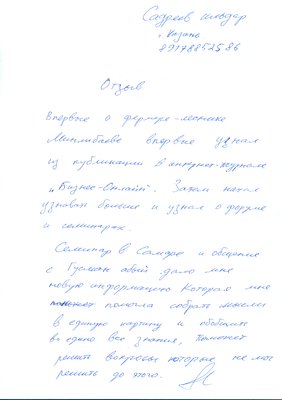 Садреев Ильдар
г. Казань
89178852586
Отзыв
Впервые о фермере-механике
Мингибаеве впервые узнал
из публикации в интернет-журнале
„Бизнес-Онлайн". Затем начал
узнавал больше и узнал о форуме
и семинарах.
Семинар в Самаре и общение
с Гусман абый дало мне
новую информацию которая мне
помогла собрать мысли
в единую картину и обобщить
в едино все знания, поможет
решить вопросы которые не мог
решить до этого.